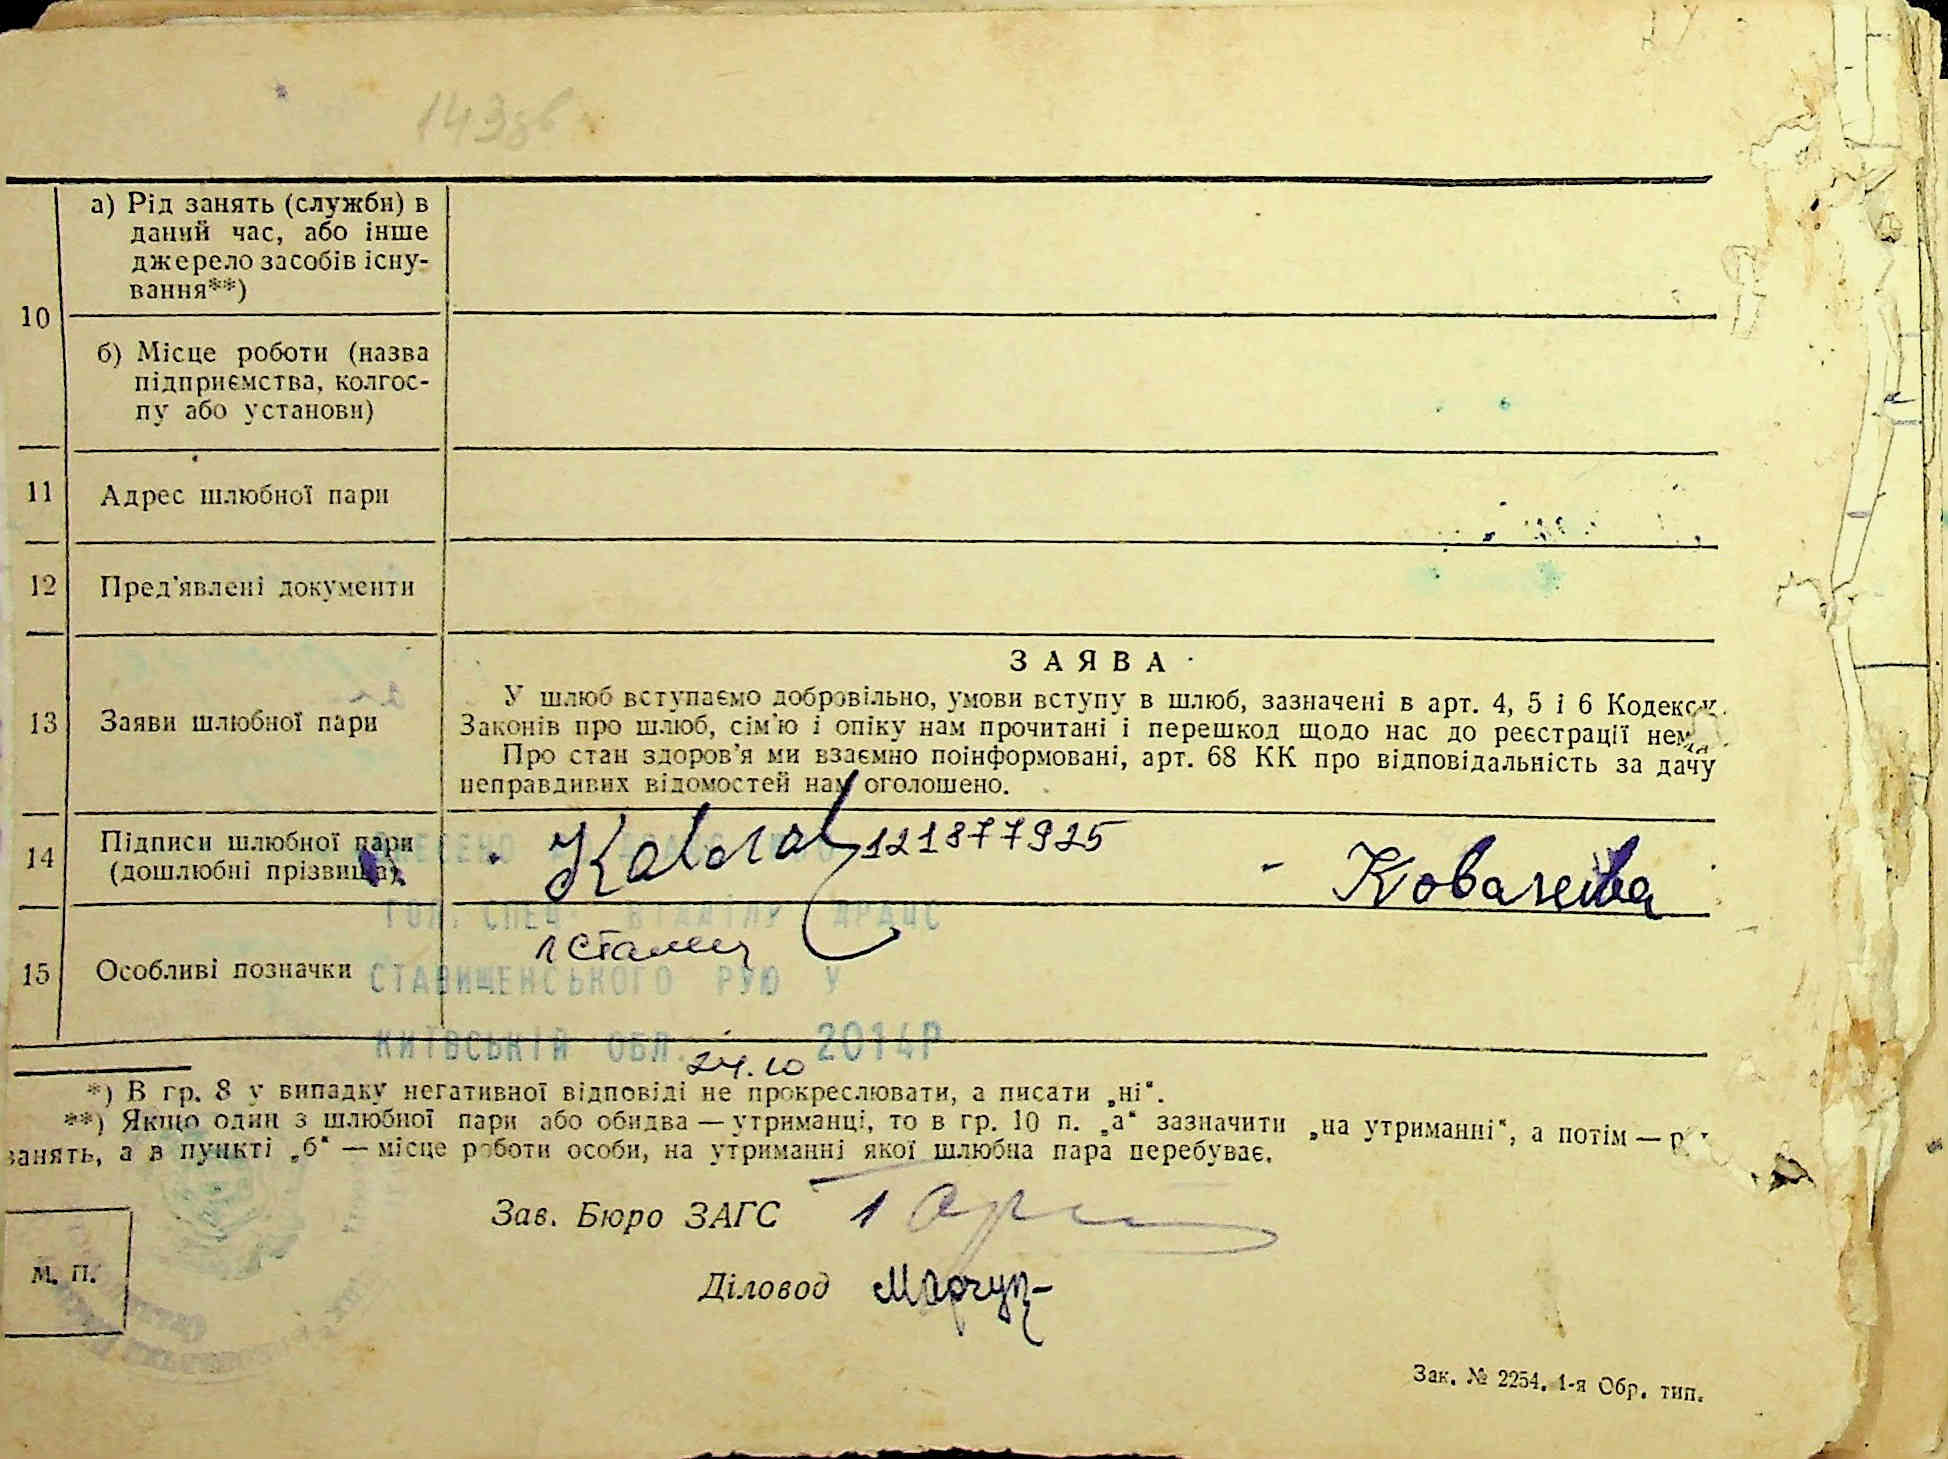 143зв
10
а) Рід занять (служби) в
даний час, або інше
джерело засобів існу-
вання**)
б) Місце роботи (назва
підприємства, колгос-
пу або установи)
11 Адрес шлюбної пари
12 Пред'явлені документи
13 Заяви шлюбної пари
ЗАЯВА
У шлюб вступаємо добровільно, умови вступу в шлюб, зазначені в арт. 4, 5 і 6 Кодексу
Законів про шлюб, сім'ю і опіку нам прочитані і перешкод щодо нас до реєстрації нема.
Про стан здоров'я ми взаємно поінформовані, арт. 68 КК про відповідальність за дачу
неправдивих відомостей нам оголошено.
14 Підписи шлюбної пари
(дошлюбні прізвища)
121877925
Ковалева
ГОЛ. СПЕЦ. ВІДДІЛУ ДРАЦС
15 Особливі позначки
СТАВИЩЕНСЬКОГО РУЮ У
КИЇВСЬКІЙ ОБЛ. 24.10 2014Р
*) В гр. 8 у випадку негативної відповіді не прокреслювати, а писати „ні“.
**) Якщо один з шлюбної пари або обидва — утриманці, то в гр. 10 п. „а“ зазначити „на утриманні“, а потім —
занять, а в пункті „б“ — місце роботи особи, на утриманні якої шлюбна пара перебуває.
Зав. Бюро ЗАГС
М. П.
Діловод
Зак. № 2254. 1-я Обр. тип.